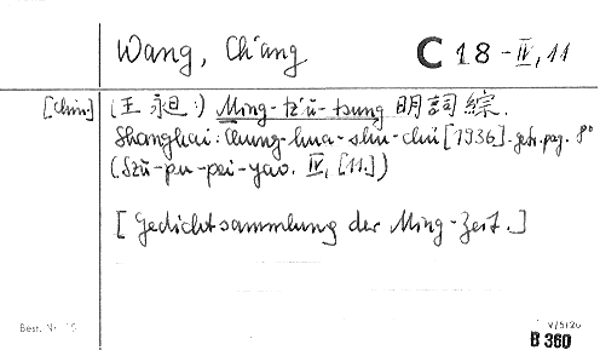 Wang, Ch'ang C 18 - IV, 11
[Chin.] (王昶:) Ming-tz'ŭ-tsung 明詞綜.
Shanghai: Chung-hua-shu-chü [1936]. getr. pag. 8°
(Szŭ-pu-pei-yao. IV, [11.])
[Gedichtsammlung der Ming-Zeit.]
Best. Nr.
V/5120
B 360